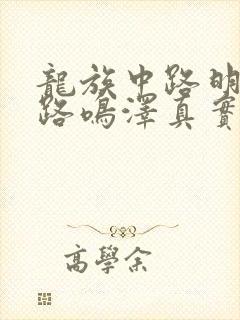 龍族中路明
路鳴澤真實
高學余